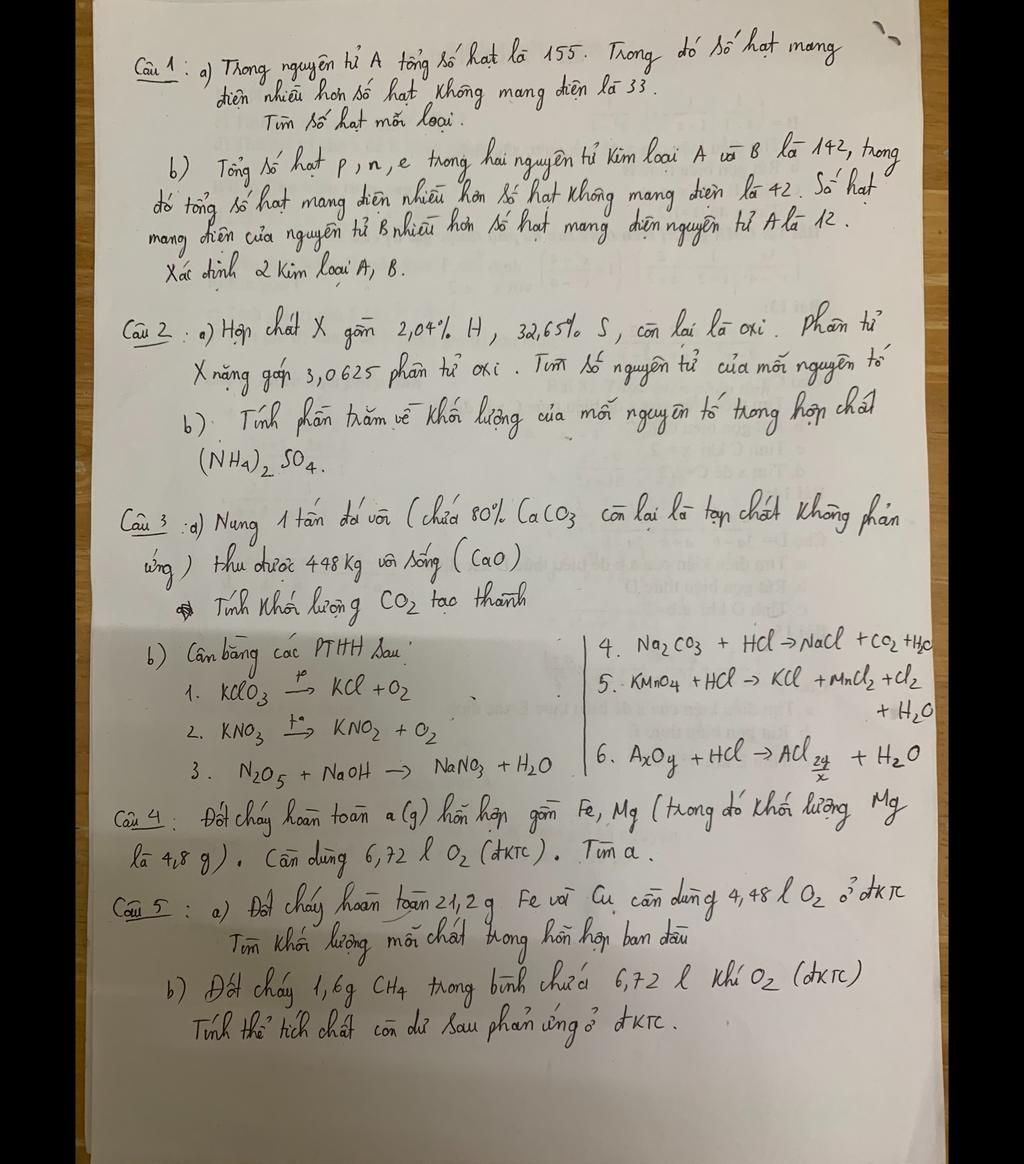 Câu 1 : a) Trong nguyên tử A tổng số hạt là 155. Trong đó số hạt mang
điện nhiều hơn số hạt không mang điện là 33.
Tìm số hạt mỗi loại.
b) Tổng số hạt p, n, e trong hai nguyên tử kim loại A và B là 142, trong
đó tổng số hạt mang điện nhiều hơn số hạt không mang điện là 42. Số hạt
mang điện của nguyên tử B nhiều hơn số hạt mang điện nguyên tử A là 12.
Xác định 2 kim loại A, B.
Câu 2 : a) Hợp chất X gồm 2,04% H, 32,65% S, còn lại là oxi. Phân tử
X nặng gấp 3,0625 phân tử oxi. Tìm số nguyên tử của mỗi nguyên tố
b) Tính phần trăm về khối lượng của mỗi nguyên tố trong hợp chất
(NH4)2 SO4.
Câu 3 : a) Nung 1 tấn đá vôi (chứa 80% CaCO3 còn lại là tạp chất không phản
ứng) thu được 448 Kg vôi sống (CaO)
Tính khối lượng CO2 tạo thành
b) Cân bằng các PTHH sau:
1. KClO3 t°→ KCl + O2
2. KNO3 t°→ KNO2 + O2
3. N2O5 + NaOH → NaNO3 + H2O
4. Na2CO3 + HCl → NaCl + CO2 + H2O
5. KMnO4 + HCl → KCl + MnCl2 + Cl2
+ H2O
6. AxOy + HCl → ACl 2y/x + H2O
Câu 4 : Đốt cháy hoàn toàn a (g) hỗn hợp gồm Fe, Mg (trong đó khối lượng Mg
là 4,8 g). Cần dùng 6,72 l O2 (đKTC). Tìm a.
Câu 5 : a) Đốt cháy hoàn toàn 21,2 g Fe và Cu cần dùng 4,48 l O2 ở đKTC
Tìm khối lượng mỗi chất trong hỗn hợp ban đầu
b) Đốt cháy 1,6g CH4 trong bình chứa 6,72 l khí O2 (đKTC)
Tính thể tích chất còn dư sau phản ứng ở đKTC.